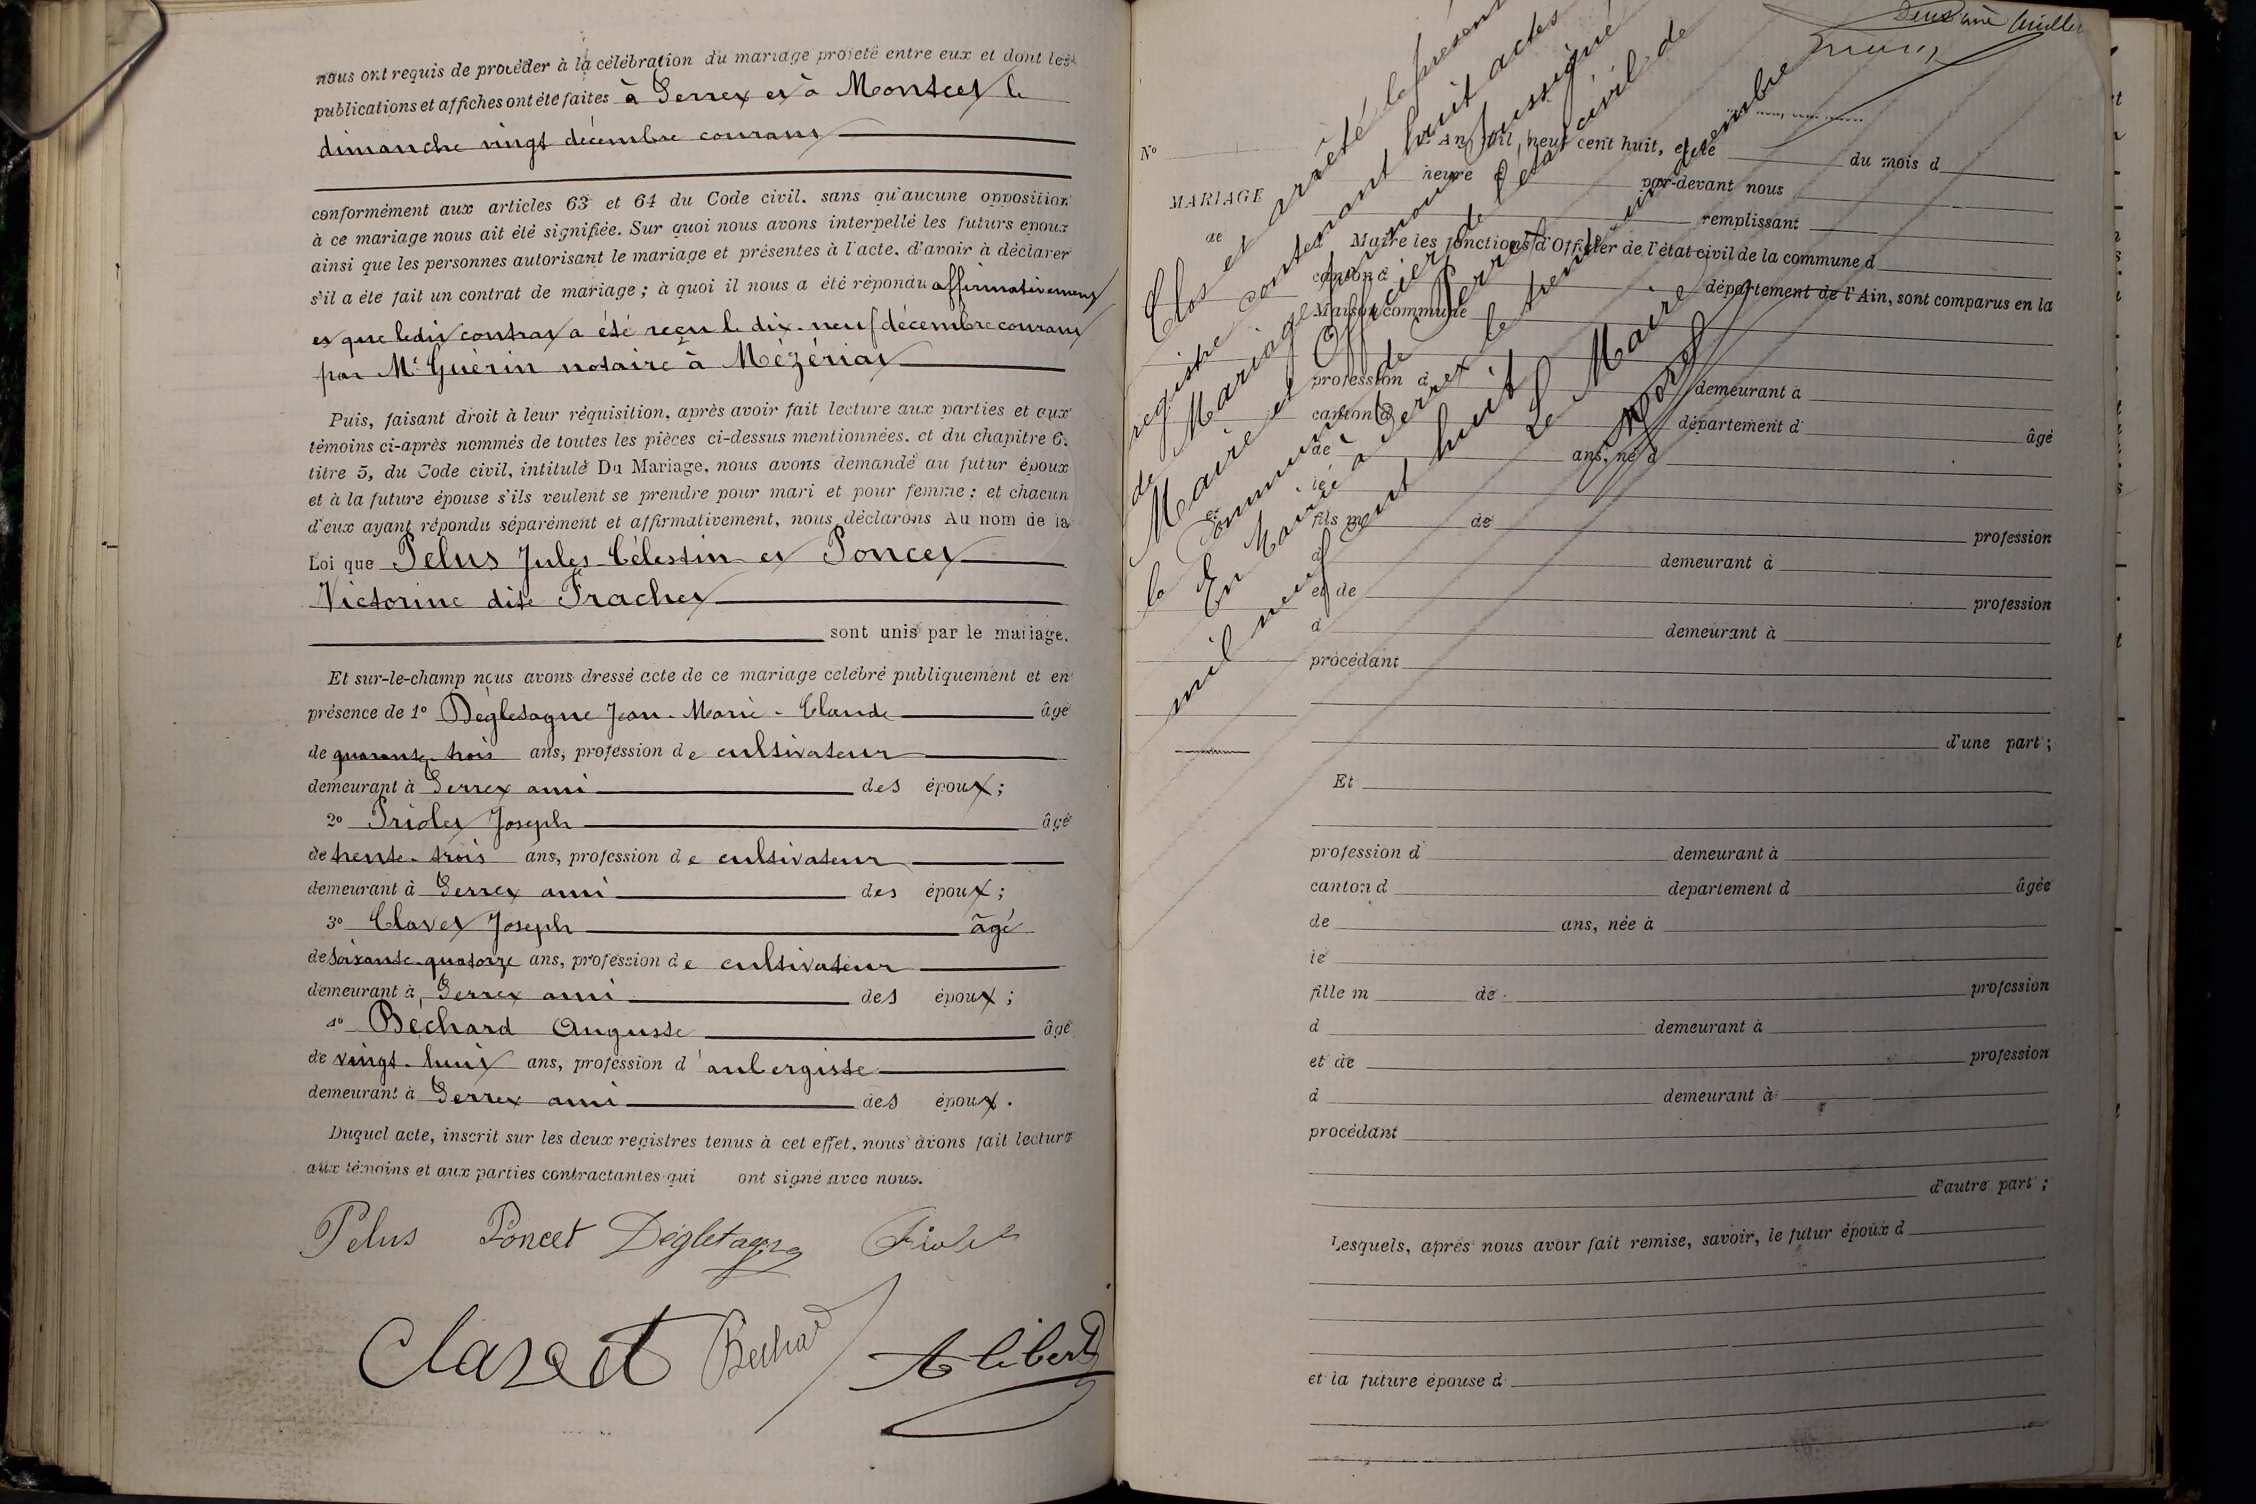 nous ont requis de procéder à la célébration du mariage projeté entre eux et dont les
publications et affiches ont été faites à Perrex et à Montcet le
dimanche vingt décembre courant
conformément aux articles 63 et 64 du Code civil, sans qu'aucune opposition
à ce mariage nous ait été signifiée. Sur quoi nous avons interpellé les futurs époux
ainsi que les personnes autorisant le mariage et présentes à l'acte, d'avoir à déclarer
s'il a été fait un contrat de mariage ; à quoi il nous a été répondu affirmativement
et que ledit contrat a été reçu le dix-neuf décembre courant
par Me Guérin notaire à Mézériat
Puis, faisant droit à leur réquisition, après avoir fait lecture aux parties et aux
témoins ci-après nommés de toutes les pièces ci-dessus mentionnées, et du chapitre 6,
titre 5, du Code civil, intitulé Du Mariage, nous avons demandé au futur époux
et à la future épouse s'ils veulent se prendre pour mari et pour femme ; et chacun
d'eux ayant répondu séparément et affirmativement, nous déclarons Au nom de la
Loi que Pelus Jules Célestin et Poncet
Victorine dite Frachet
sont unis par le mariage.
Et sur-le-champ nous avons dressé acte de ce mariage célébré publiquement et en
présence de 1° Dégletagne Jean-Marie-Claude âgé
de quarante-trois ans, profession de cultivateur
demeurant à Perrex ami des époux ;
2° Priolet Joseph âgé
de trente-trois ans, profession de cultivateur
demeurant à Perrex ami des époux ;
3° Clavet Joseph âgé
de soixante-quatorze ans, profession de cultivateur
demeurant à Perrex ami des époux ;
4° Bechard Auguste âgé
de vingt-huit ans, profession d'aubergiste
demeurant à Perrex ami des époux.
Duquel acte, inscrit sur les deux registres tenus à cet effet, nous avons fait lecture
aux témoins et aux parties contractantes qui ont signé avec nous.
Pelus Poncet Dégletagne Priolet
Clavet Bechard Alibert
Deuxième feuillet
N°
An mil neuf cent huit, et le du mois d
MARIAGE
heure d par-devant nous
de
remplissant
Maire les fonctions d'Officier de l'état civil de la commune d
canton d département de l'Ain, sont comparus en la
Maison commune
Clos et arrêté le présent
registre contenant huit actes
de Mariage par nous soussigné
Maire et Officier de l'état civil de
la Commune de Perrex
En Mairie à Perrex le trente-un décembre
mil neuf cent huit
Le Maire
profession d demeurant à
canton d département d âgé
de ans, né à
le
et
fils m de profession
d demeurant à
et de profession
d demeurant à
procédant
d'une part ;
Et
profession d demeurant à
canton d département d âgée
de ans, née à
le
fille m de profession
d demeurant à
et de profession
d demeurant à
procédant
d'autre part ;
Lesquels, après nous avoir fait remise, savoir, le futur époux d
et la future épouse d